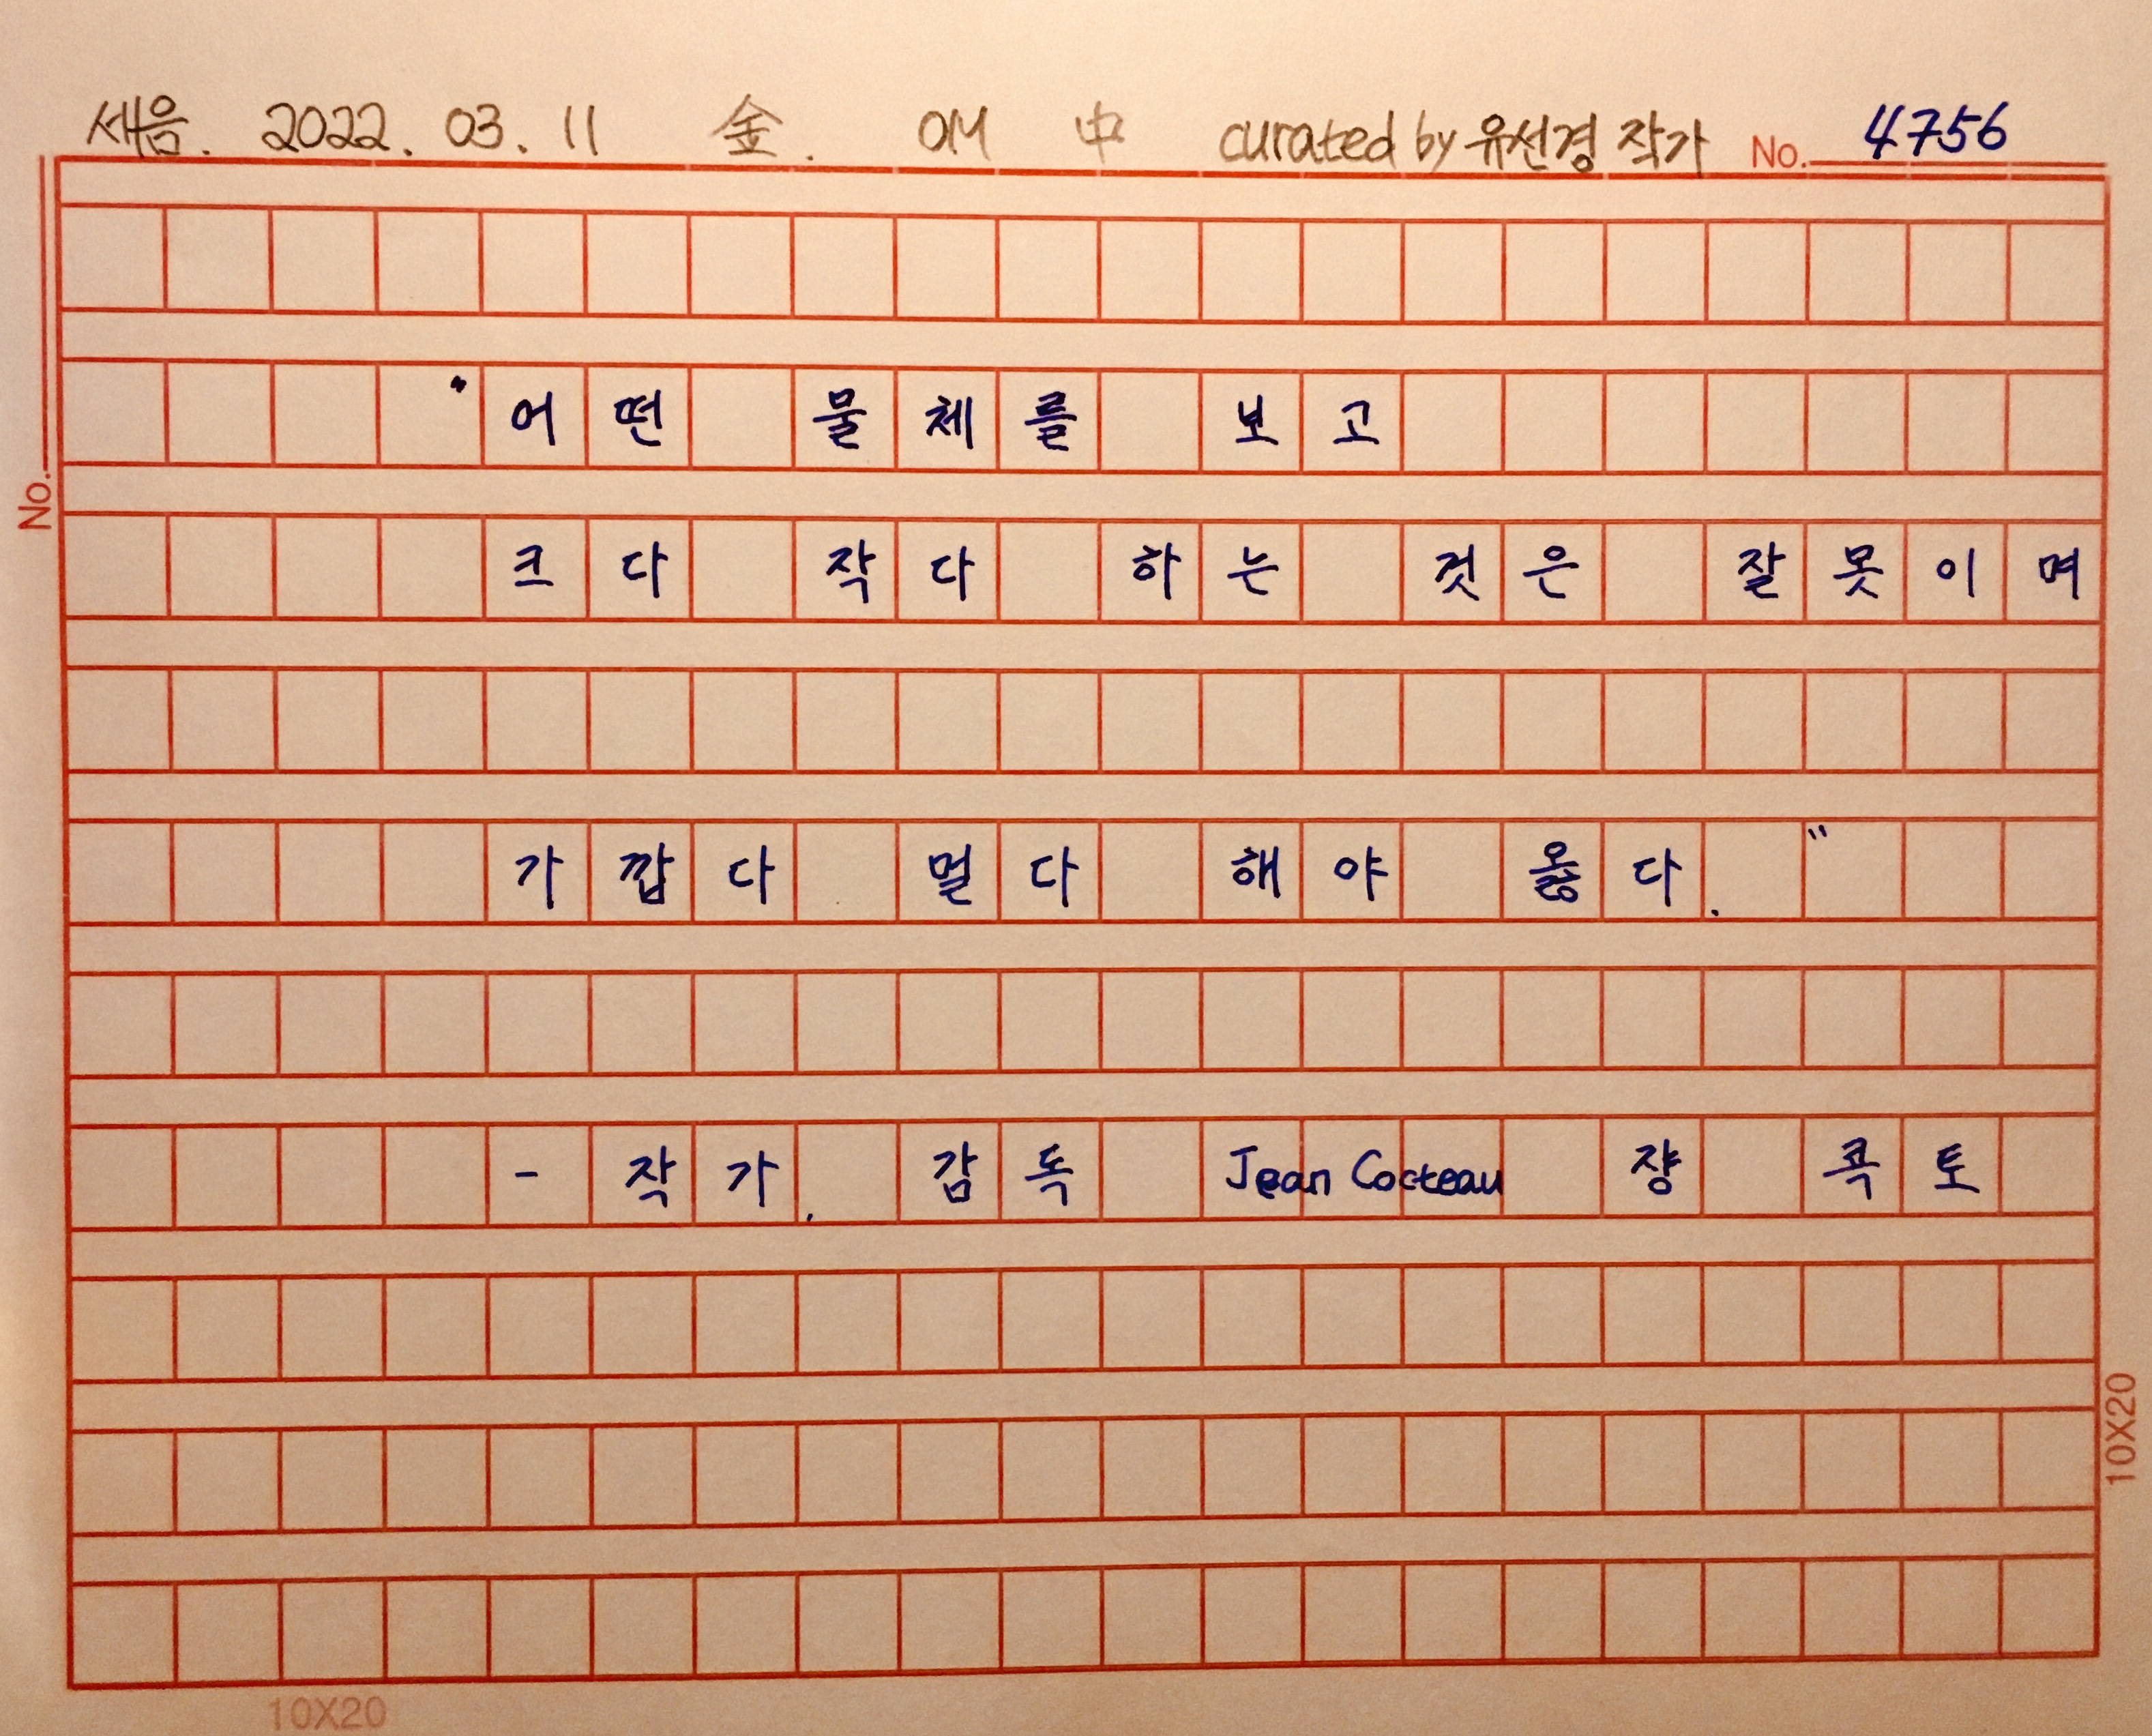 세음. 2022. 03. 11 金. OM 中 curated by 유선경 작가 No. 4756
No.
"어떤 물체를 보고
크다 작다 하는 것은 잘못이며
가깝다 멀다 해야 옳다."
- 작가. 감독 Jean Cocteau 쟝 콕토
10X20
10X20